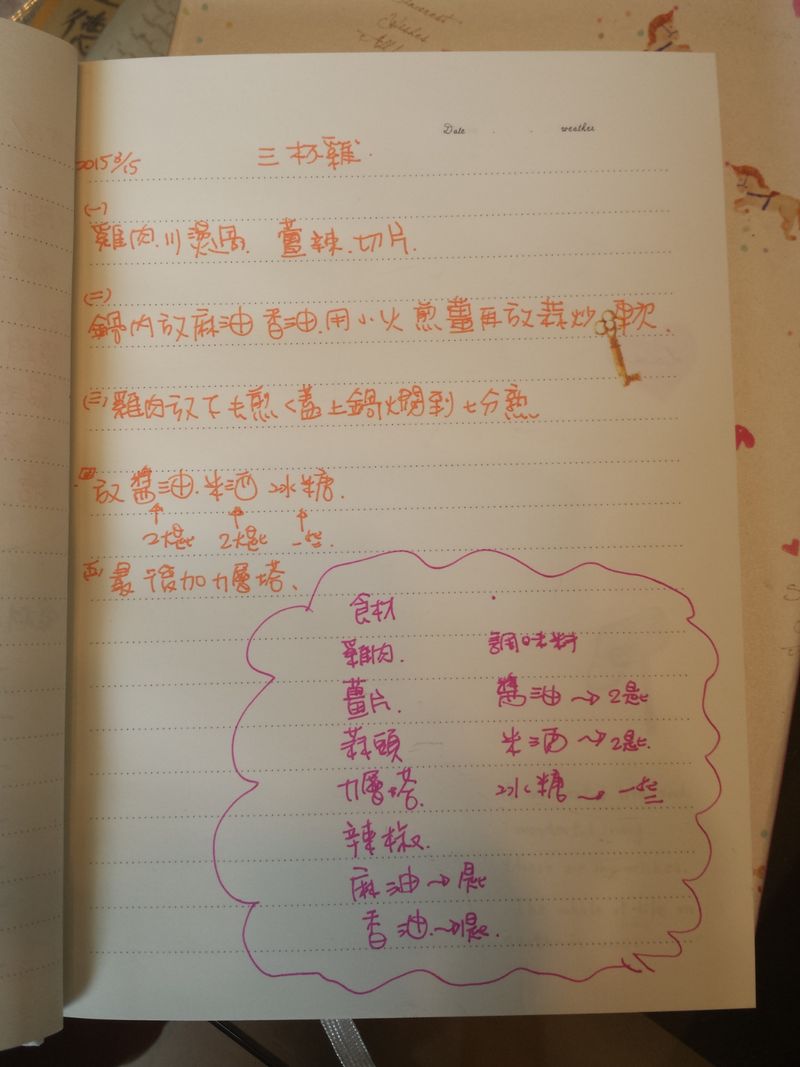 Date . . weather
2015 3/15 三杯雞.
(一)
雞肉.川燙.
薑辣.切片.
(二)
鍋內放麻油香油.用小火煎薑再放蒜炒
(三)雞肉放下去煎<蓋上鍋燜到七分熟
(四)放醬油.米酒冰糖.
↑ ↑ ↑
2大匙 2大匙 一些
(五)最後加九層塔、
食材
雞肉.
薑片.
蒜頭
九層塔.
辣椒.
麻油→1匙
香油.→1匙.
調味料
醬油→2匙
米酒→2匙.
冰糖→一些